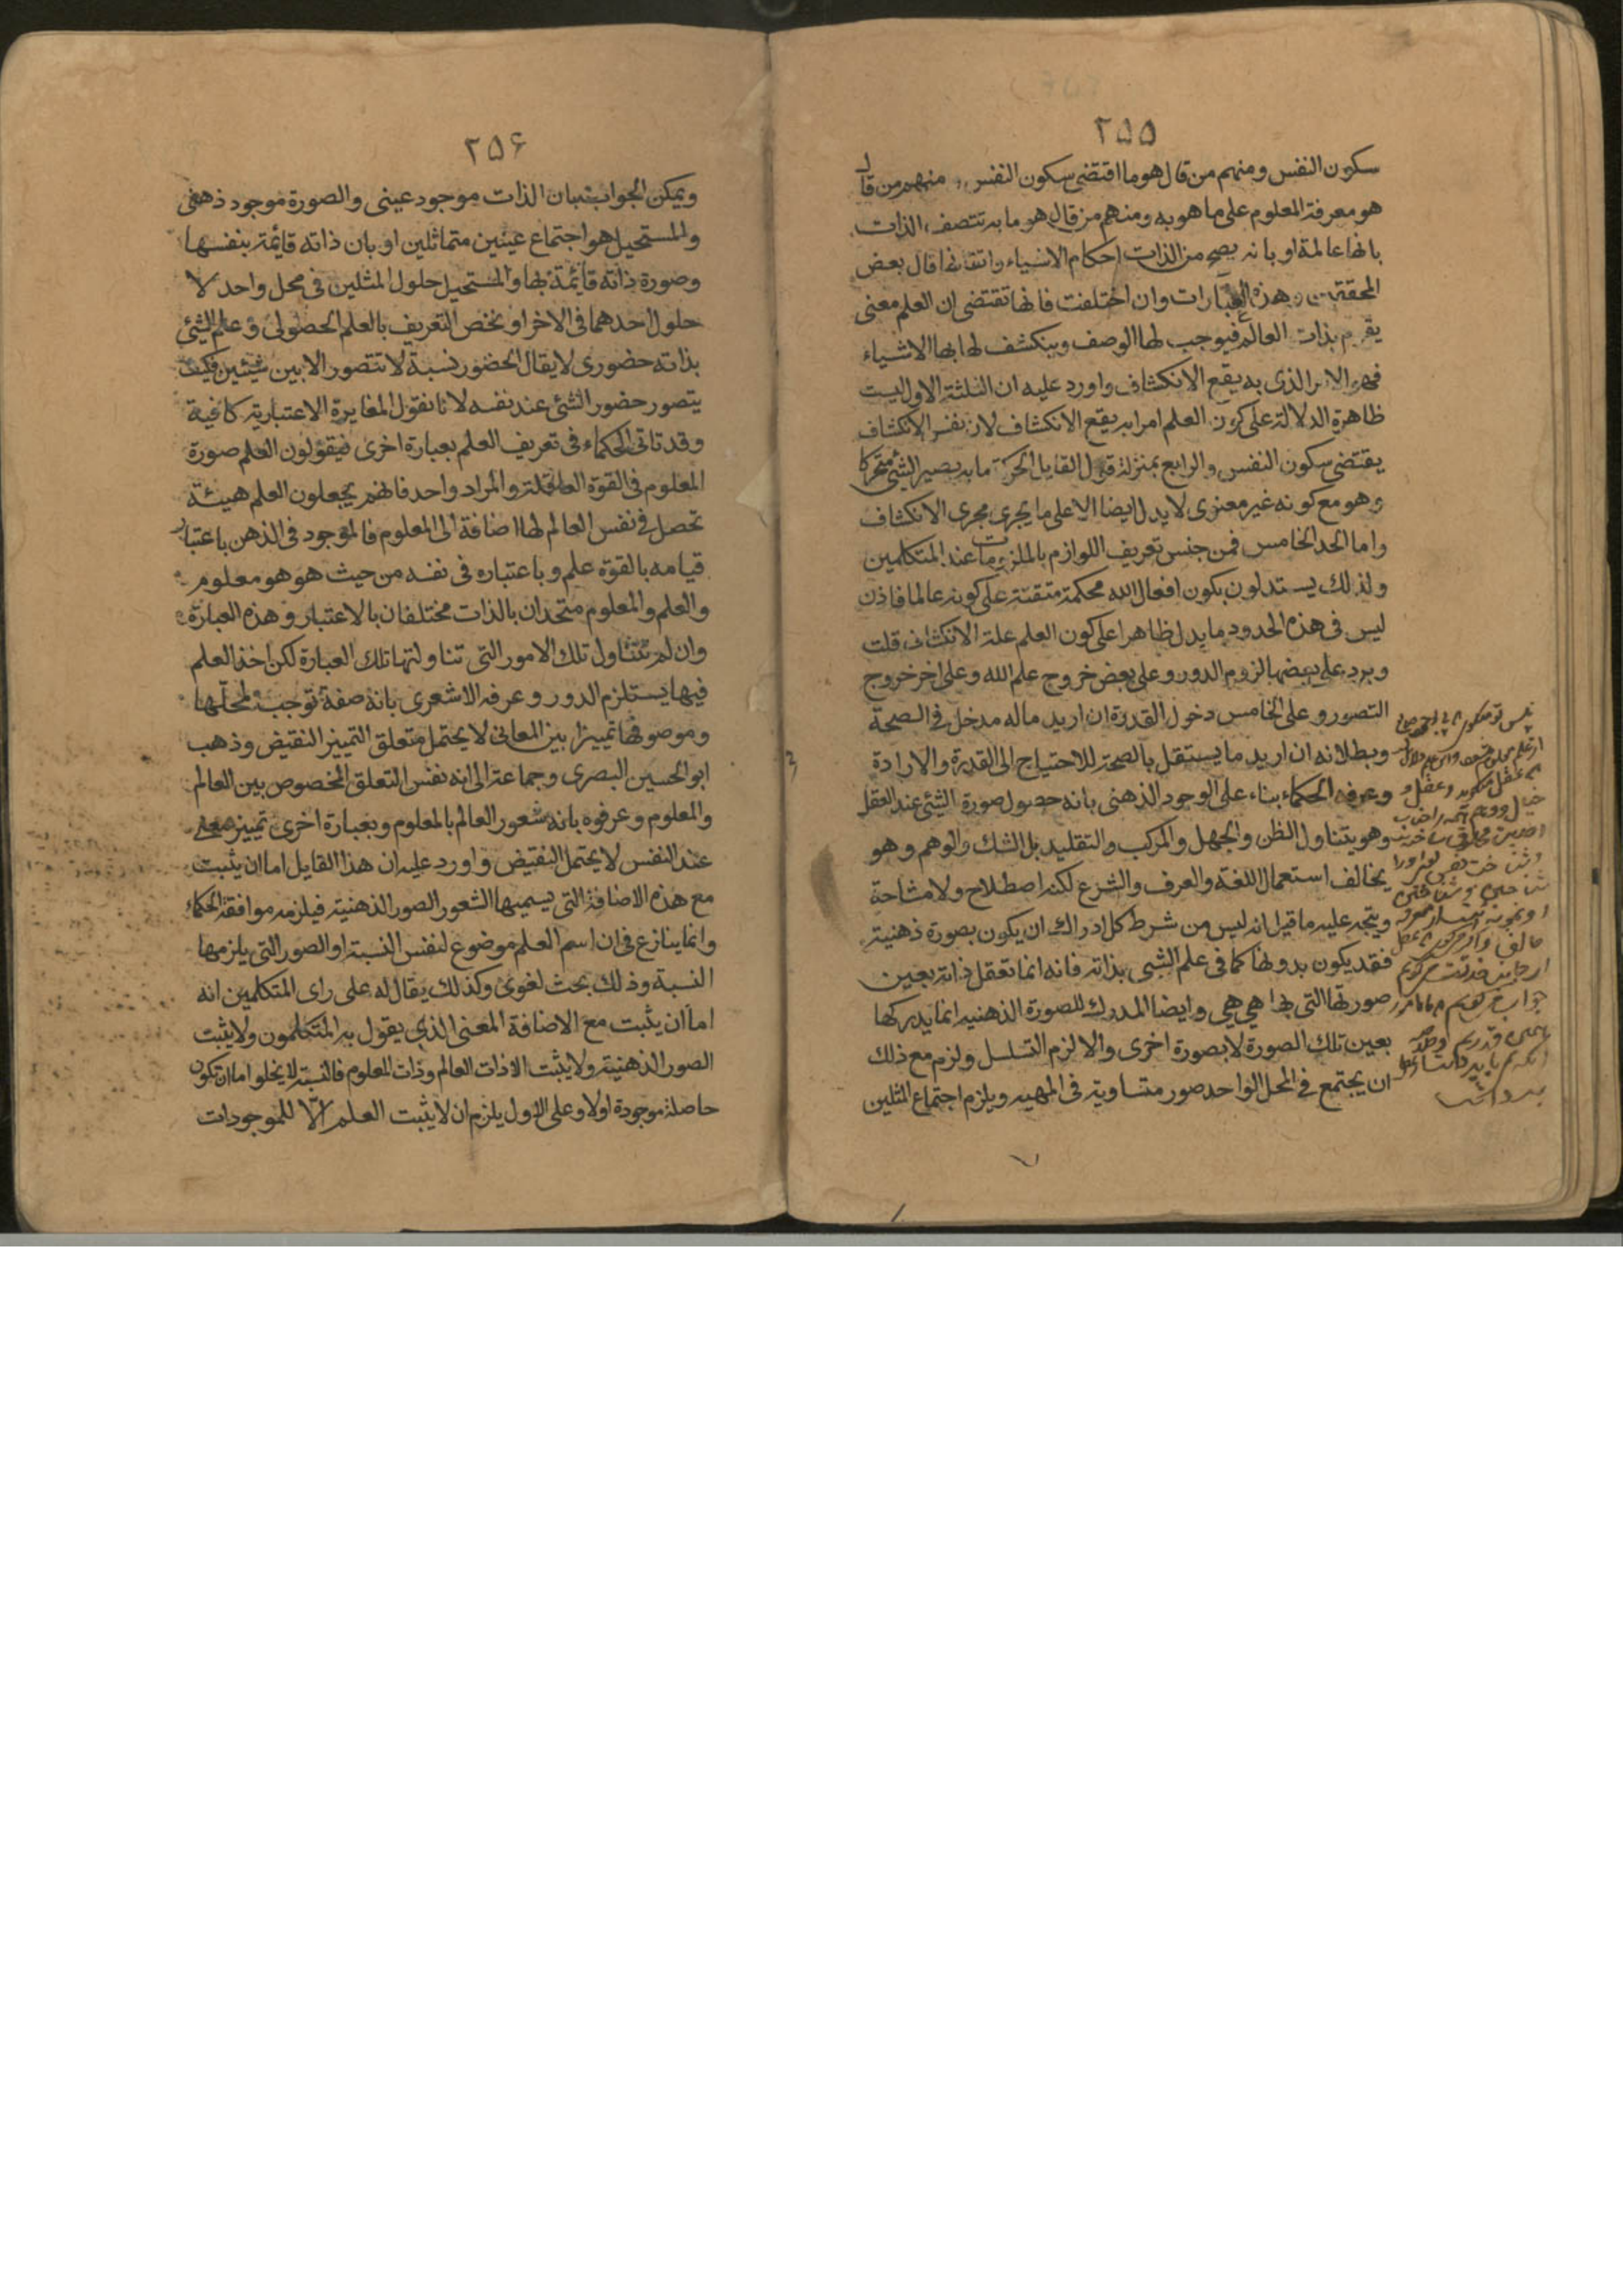 ۲۵۵
سكون النفس ومنهم من قال هو ما اقتضى سكون النفس ومنهم من قال
هو معرفة المعلوم على ما هو به ومنهم من قال هو ما به تتصف الذات
بانها عالمة او بانه يصح من الذات احكام الاشياء واتقانها قال بعض
المحققين وهذه العبارات وان اختلفت فانها تقتضى ان العلم معنى
يقوم بذات العالم فيوجب لها الوصف وينكشف لها بها الاشياء
فهو الامر الذى به يقع الانكشاف واورد عليه ان الثلثة الاول ليست
ظاهرة الدلالة على كون العلم امرا به يقع الانكشاف لان نفس الانكشاف
يقتضى سكون النفس والرابع بمنزلة قول القايل الحركة ما به يصير الشئ متحركا
وهو مع كونه غير معنوى لا يدل ايضا الا على ما يجرى مجرى الانكشاف
واما الحد الخامس فمن جنس تعريف اللوازم بالملزومات عند المتكلمين
ولذلك يستدلون بكون افعال الله محكمة متقنة على كونه عالما فاذن
ليس فى هذه الحدود ما يدل ظاهرا على كون العلم علة الانكشاف قلت
ويرد على بعضها لزوم الدور وعلى بعض خروج علم الله وعلى اخر خروج
التصور وعلى الخامس دخول القدرة ان اريد ماله مدخل فى الصحة
وبطلانه ان اريد ما يستقل بالصحة للاحتياج الى القدرة والارادة
وعرفه الحكماء بناء على الوجود الذهنى بانه حصول صورة الشئ عند العقل
وهو يتناول الظن والجهل والمركب والتقليد بل الشك والوهم وهو
يخالف استعمال اللغة والعرف والشرع لكنه اصطلاح ولا مشاحة
ويتجه عليه ما قيل انه ليس من شرط كل ادراك ان يكون بصورة ذهنية
فقد يكون بدونها كما فى علم الشئ بذاته فانه انما تعقل ذاته بعين
صورتها التى بها هى هى وايضا المدرك للصورة الذهنيه انما يدركها
بعين تلك الصورة لا بصورة اخرى والا لزم التسلسل ولزم مع ذلك
ان يجتمع فى المحل الواحد صور متساوية فى المهيه ويلزم اجتماع المثلين
۲۵۶
ويمكن الجواب بان الذات موجود عينى والصورة موجود ذهنى
والمستحيل هو اجتماع عينين متماثلين او بان ذاته قايمة بنفسها
وصورة ذاته قايمة بها والمستحيل حلول المثلين فى محل واحد لا
حلول احدهما فى الاخر او نخص التعريف بالعلم الحصولى وعلم الشئ
بذاته حضورى لا يقال الحضور نسبة لا تتصور الا بين شيئين فكيف
يتصور حضور الشئ عند نفسه لانا نقول المغايرة الاعتبارية كافية
وقد تاتى الحكماء فى تعريف العلم بعبارة اخرى فيقولون العلم صورة
المعلوم فى القوة العاقلة والمراد واحد فانهم يجعلون العلم هيئة
تحصل فى نفس العالم لها اضافة الى المعلوم فالموجود فى الذهن باعتبار
قيامه بالقوة علم وباعتباره فى نفسه من حيث هو هو معلوم
والعلم والمعلوم متحدان بالذات مختلفان بالاعتبار وهذه العبارة
وان لم تتناول تلك الامور التى تناولتها تلك العبارة لكن اخذ العلم
فيها يستلزم الدور وعرفه الاشعرى بانه صفة توجب لمحلها
وموصوفها تمييزا بين المعانى لا يحتمل متعلق التمييز النقيض وذهب
ابو الحسين البصرى وجماعة الى انه نفس التعلق المخصوص بين العالم
والمعلوم وعرفوه بانه شعور العالم بالمعلوم وبعبارة اخرى تمييز معنى
عند النفس لا يحتمل النقيض واورد عليه ان هذا القايل اما ان يثبت
مع هذه الاضافة التى يسميها الشعور الصور الذهنية فيلزمه موافقة الحكماء
وانما ينازع فى ان اسم العلم موضوع لنفس النسبة او الصور التى يلزمها
النسبة وذلك بحث لغوى وكذلك يقال له على راى المتكلمين انه
اما ان يثبت مع الاضافة المعنى الذى يقول به المتكلمون ولا يثبت
الصور الذهنية ولا يثبت الا ذات العالم وذات المعلوم فالنسبة لا يخلوا اما ان تكون
حاصلة موجودة اولا وعلى الاول يلزم ان لا يثبت العلم الا للموجودات